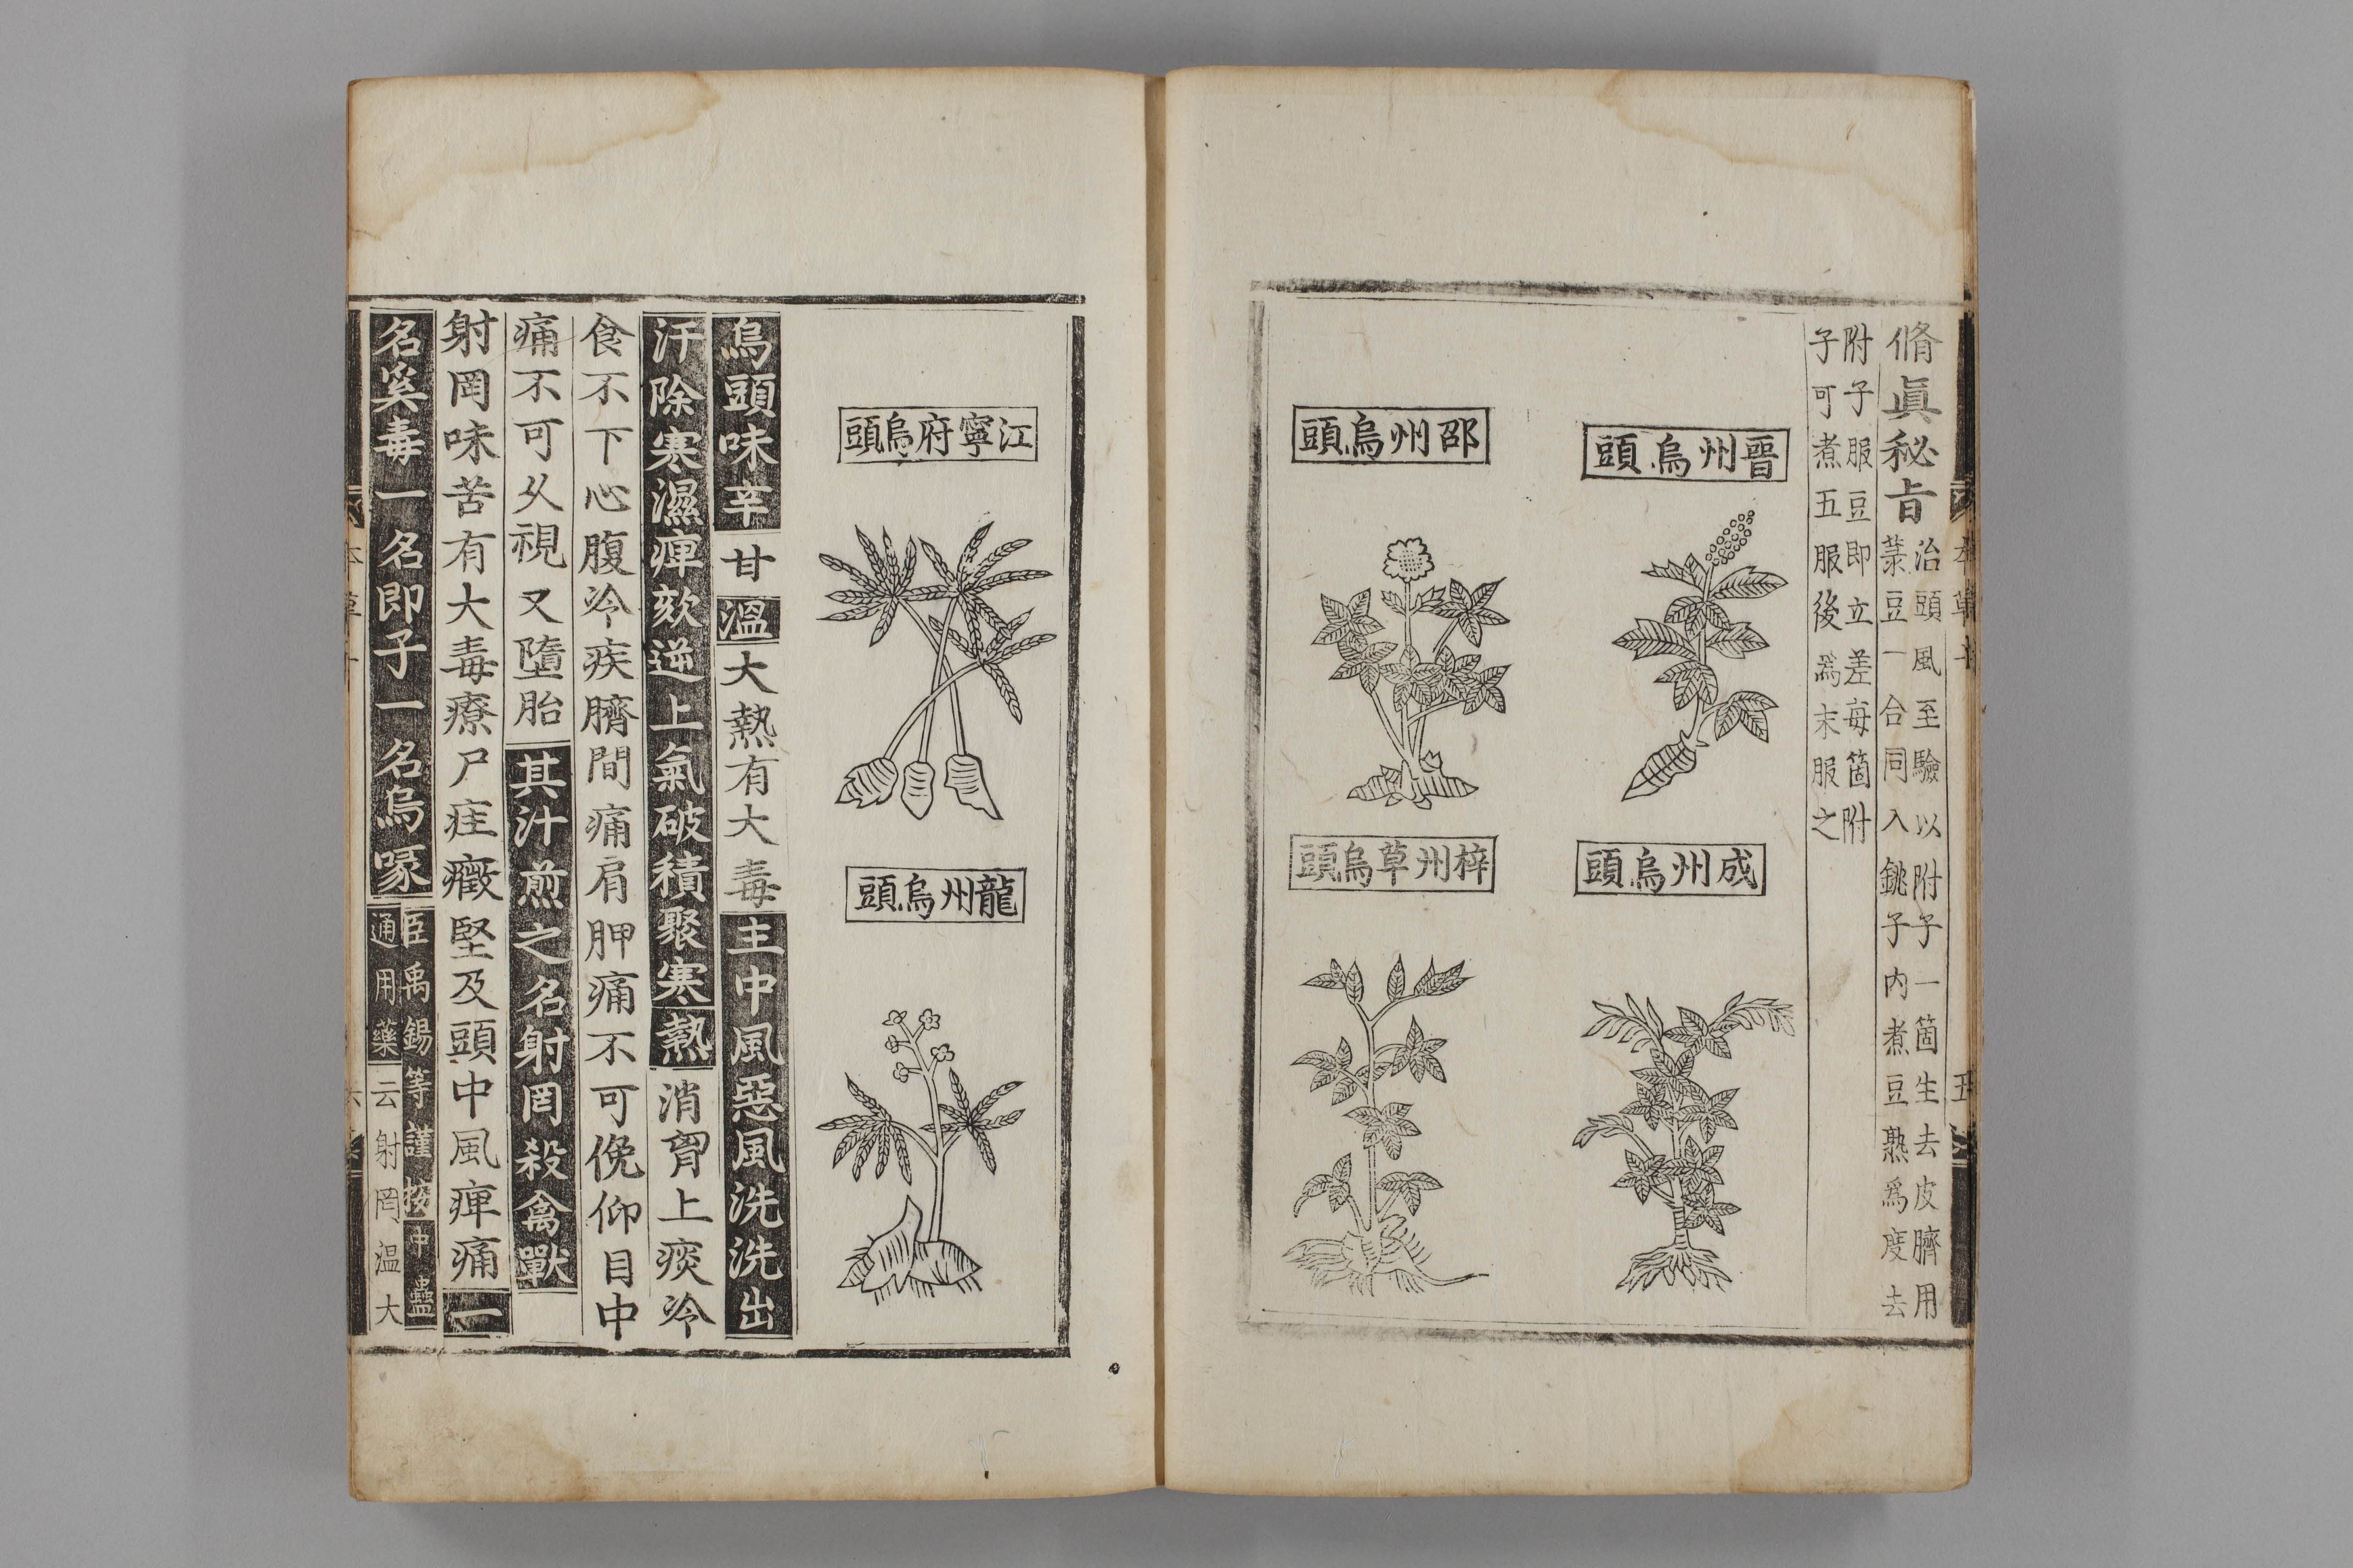 脩眞秘旨治頭風至驗以附子一箇生去皮臍用
菉豆一合同入銚子内煮豆熟爲度去
附子服豆即立差每箇附
子可煮五服後爲末服之
晉州烏頭
邵州烏頭
成州烏頭
梓州草烏頭
江寧府烏頭
龍州烏頭
烏頭味辛甘溫大熱有大毒主中風惡風洗洗出
汗除寒濕痺欬逆上氣破積聚寒熱消胷上痰冷
食不下心腹冷疾臍間痛肩胛痛不可俛仰目中
痛不可乆視又墮胎其汁煎之名射罔殺禽獸
射罔味苦有大毒療尸疰癥堅及頭中風痺痛一
名奚毒一名即子一名烏喙臣禹錫等謹按中蠱
通用藥云射罔溫大